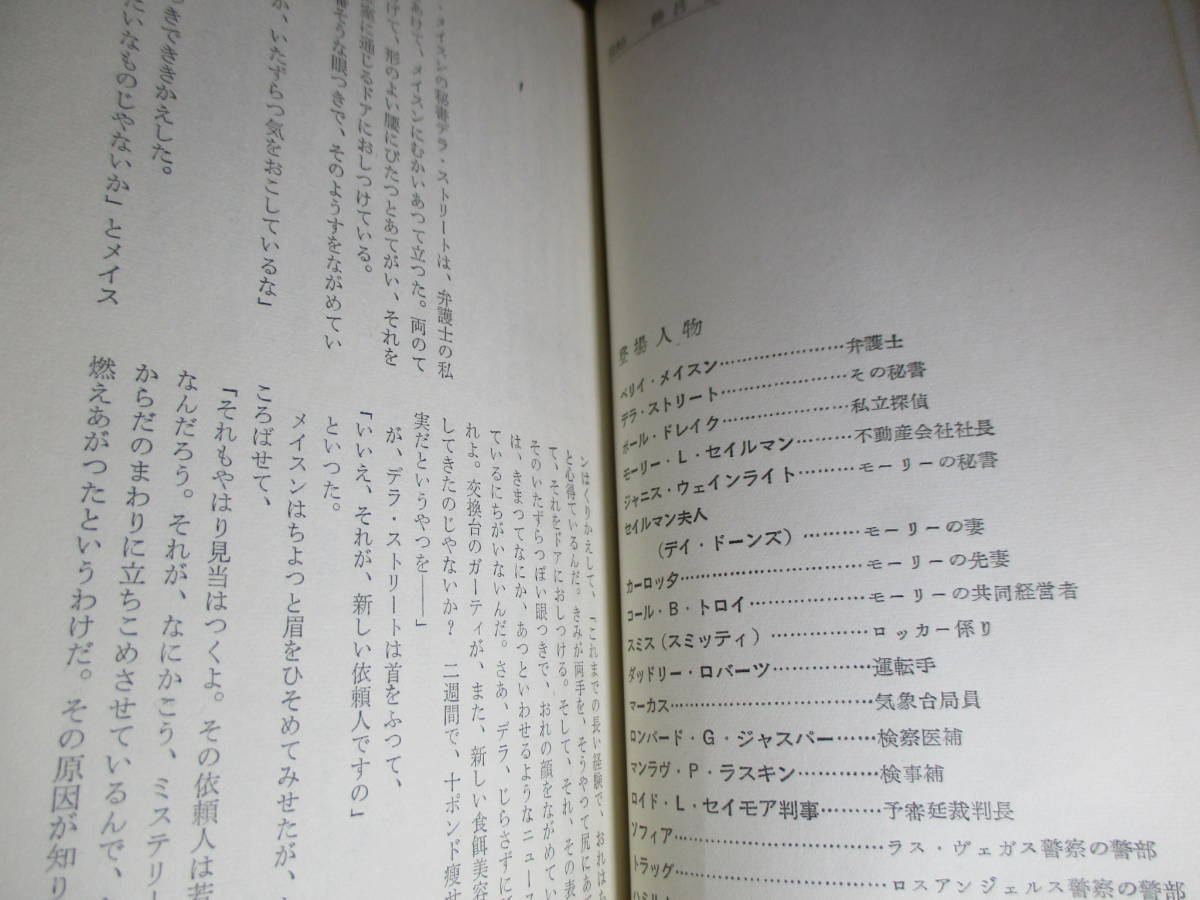 登場人物
ペリイ・メイスン……………………弁護士
デラ・ストリート……………………その秘書
ポール・ドレイク……………………私立探偵
モーリー・L・セイルマン………不動産会社社長
ジャニス・ウェインライト………モーリーの秘書
セイルマン夫人
(デイ・ドーンズ)………モーリーの妻
カーロッタ……………………………モーリーの先妻
コール・B・トロイ………………モーリーの共同経営者
スミス(スミッティ)………………ロッカー係り
ダッドリー・ロバーツ……………運転手
マーカス………………………………気象台局員
ロンバード・G・ジャスパー……検察医補
マンラヴ・P・ラスキン…………検事補
ロイド・L・セイモア判事………予審廷裁判長
ソフィア………………………………ラス・ヴェガス警察の警部
トラッグ………………………………ロスアンジェルス警察の警部
・メイスンの秘書デラ・ストリートは、弁護士の私
あけて、メイスンにむかいあって立つた。両のて
けて、形のよい腰にぴたつとあてがい、それを
に通じるドアにおしつけている。
そうな眼つきで、そのようすをながめてい
か、いたずらつ気をおこしているな」
きでききかえした。
たいなものじゃないか」とメイス
ンはくりかえして、「これまでの長い経験で、おれはち
と心得ているんだ。きみが両手を、そうやつて尻にあて
て、それをドアにおしつける。そして、それ、その表
そのいたずらつぽい眼つきで、おれの顔をながめてい
は、きまつてなにか、あつといわせるようなニュース
ているにちがいないんだ。さあ、デラ、じらさずに
れよ。交換台のガーティが、また、新しい食餌美容
してきたのじゃないか? 二週間で、十ポンド痩せ
実だというやつを――」
が、デラ・ストリートは首をふつて、
「いいえ、それが、新しい依頼人ですの」
といつた。
メイスンはちよつと眉をひそめてみせたが、
ころばせて、
「それもやはり見当はつくよ。その依頼人は若
なんだろう。それが、なにかこう、ミステリー
からだのまわりに立ちこめさせているんで、
燃えあがつたというわけだ。その原因が知り